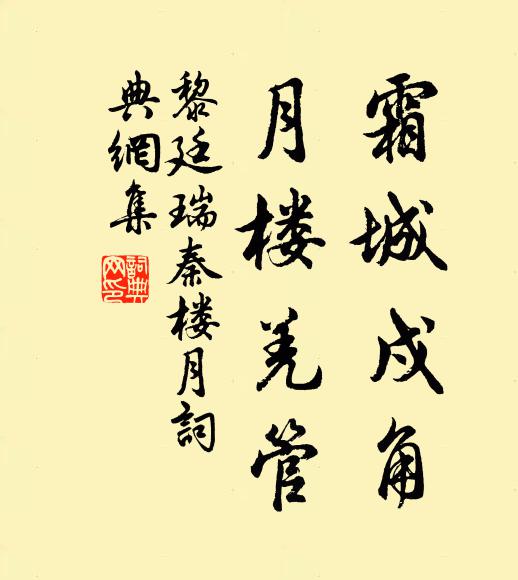 霜城戍角
月楼羌管
黎廷瑞秦楼月詞
典網集
詞典網印